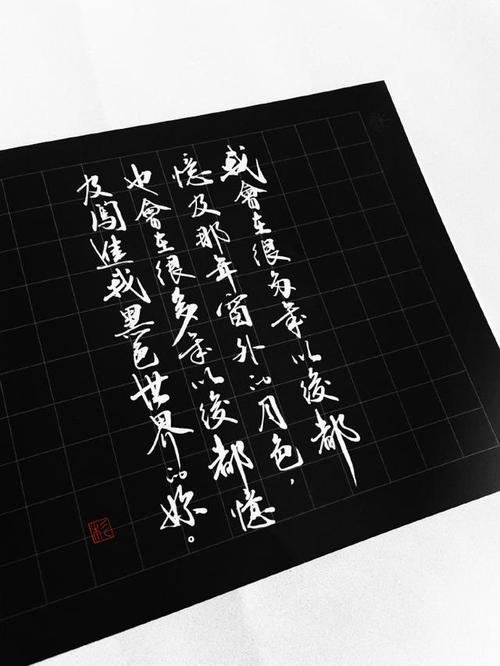 我會在很多年以後都
憶及那年窗外的月色，
也會在很多年以後都憶
及闖進我黑色世界的妳。